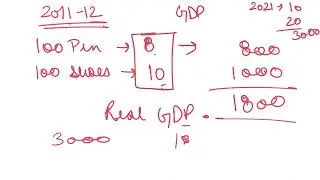 2011-12 GDP 2021 → 10
20
3000
100 Pen → 8 → 800
100 shoes → 10 1000
Real GDP. 1800
3000 18